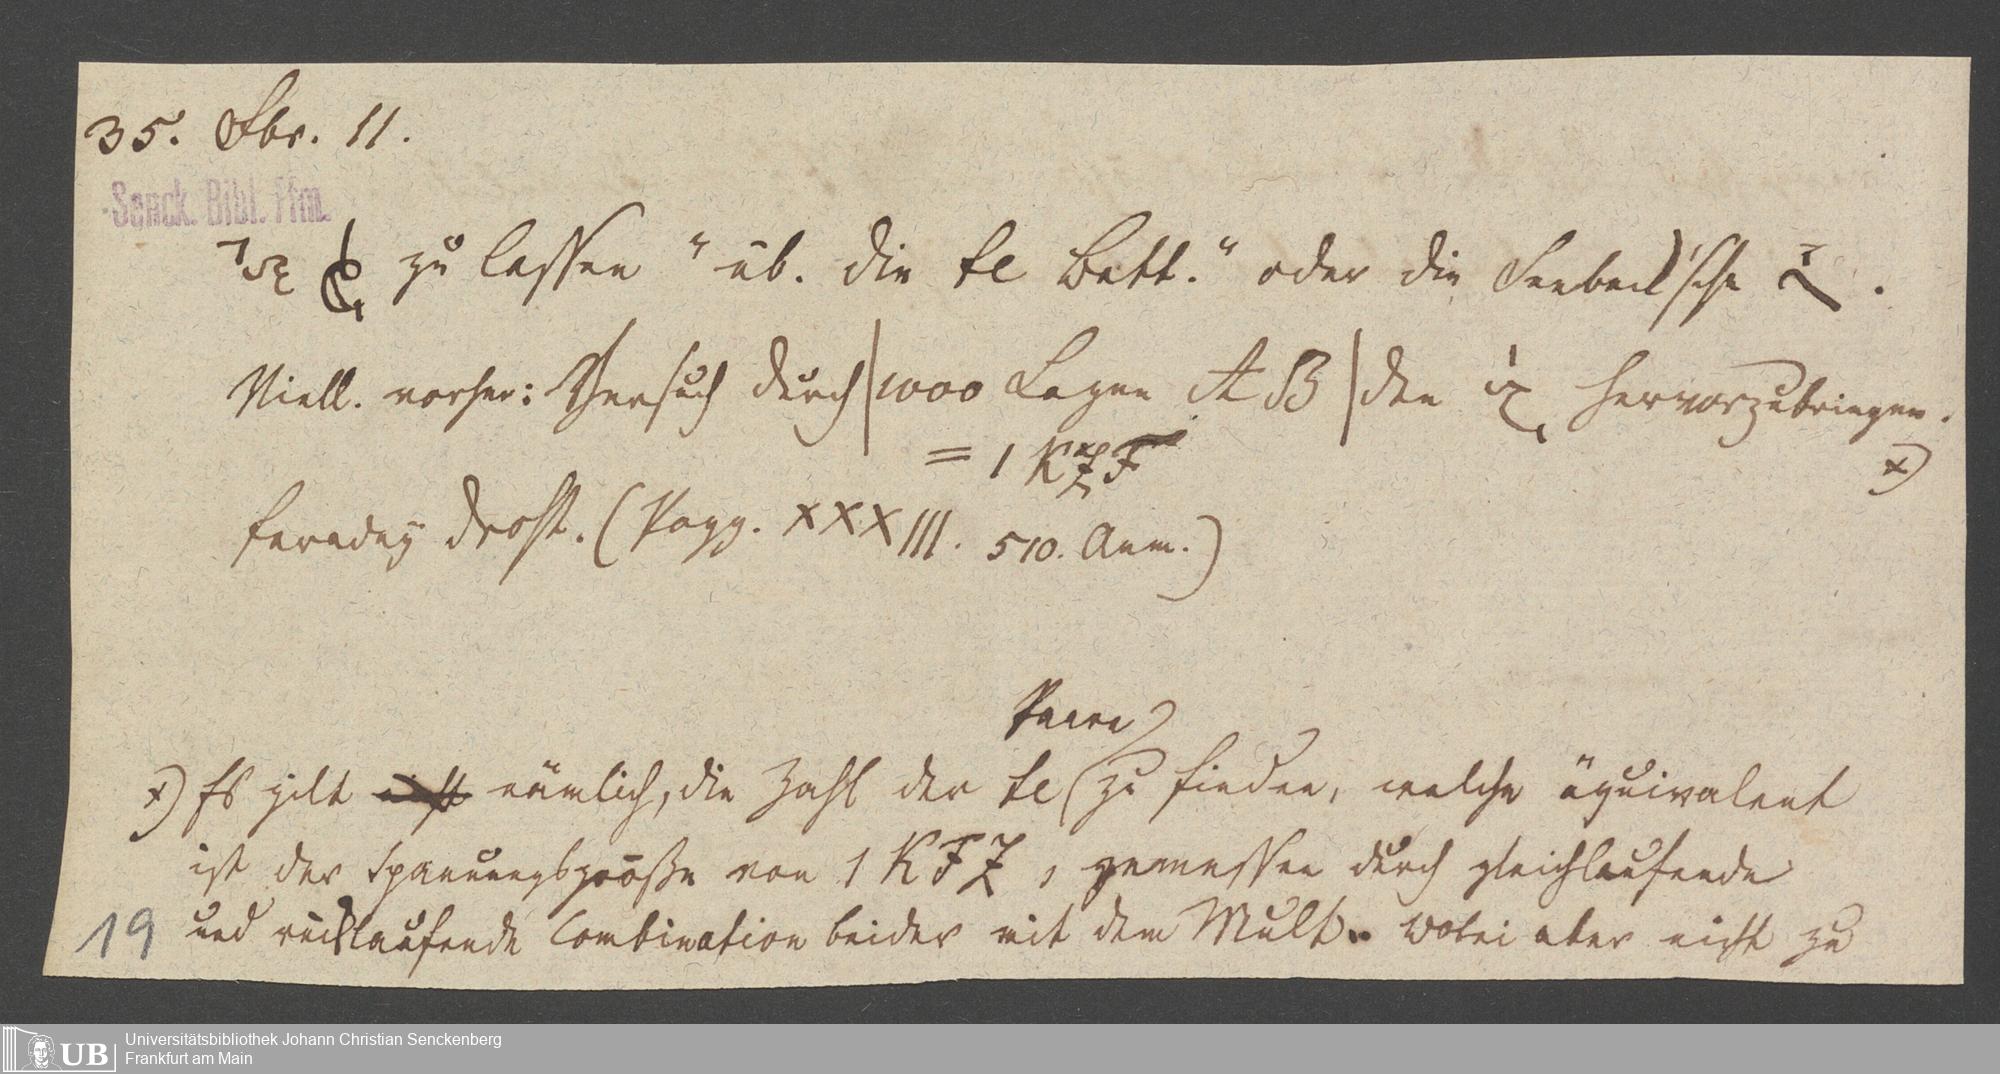 35. Fbr. 11.
Senck. Bibl. Ffm.
zu lassen "üb. die te Batt." oder die Seebeck'sche
Viell. vorher: Versuch durch | 1000 Lagen AB | den hervorzubringen.
= 1 KZF x)
Faraday droht. (Pogg. XXXIII. 510. Anm.)
Paare
x) Es gilt nämlich, die Zahl der te zu finden, welche äquivalent
ist der Spannungsgröße von 1 KFZ, gemessen durch gleichlaufende
und rücklaufende Combination beider mit dem Mult. wobei aber nicht zu
19
UB
Universitätsbibliothek Johann Christian Senckenberg
Frankfurt am Main